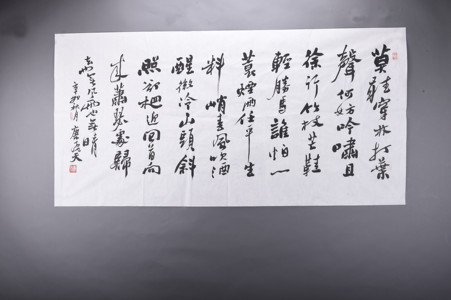 莫聽穿林打葉
聲何妨吟嘯且
徐行竹杖芒鞋
輕勝馬誰怕一
蓑煙雨任平生
料峭春風吹酒
醒微冷山頭斜
照卻相迎回首向
来蕭瑟處歸
去也无风雨也無晴
秋月